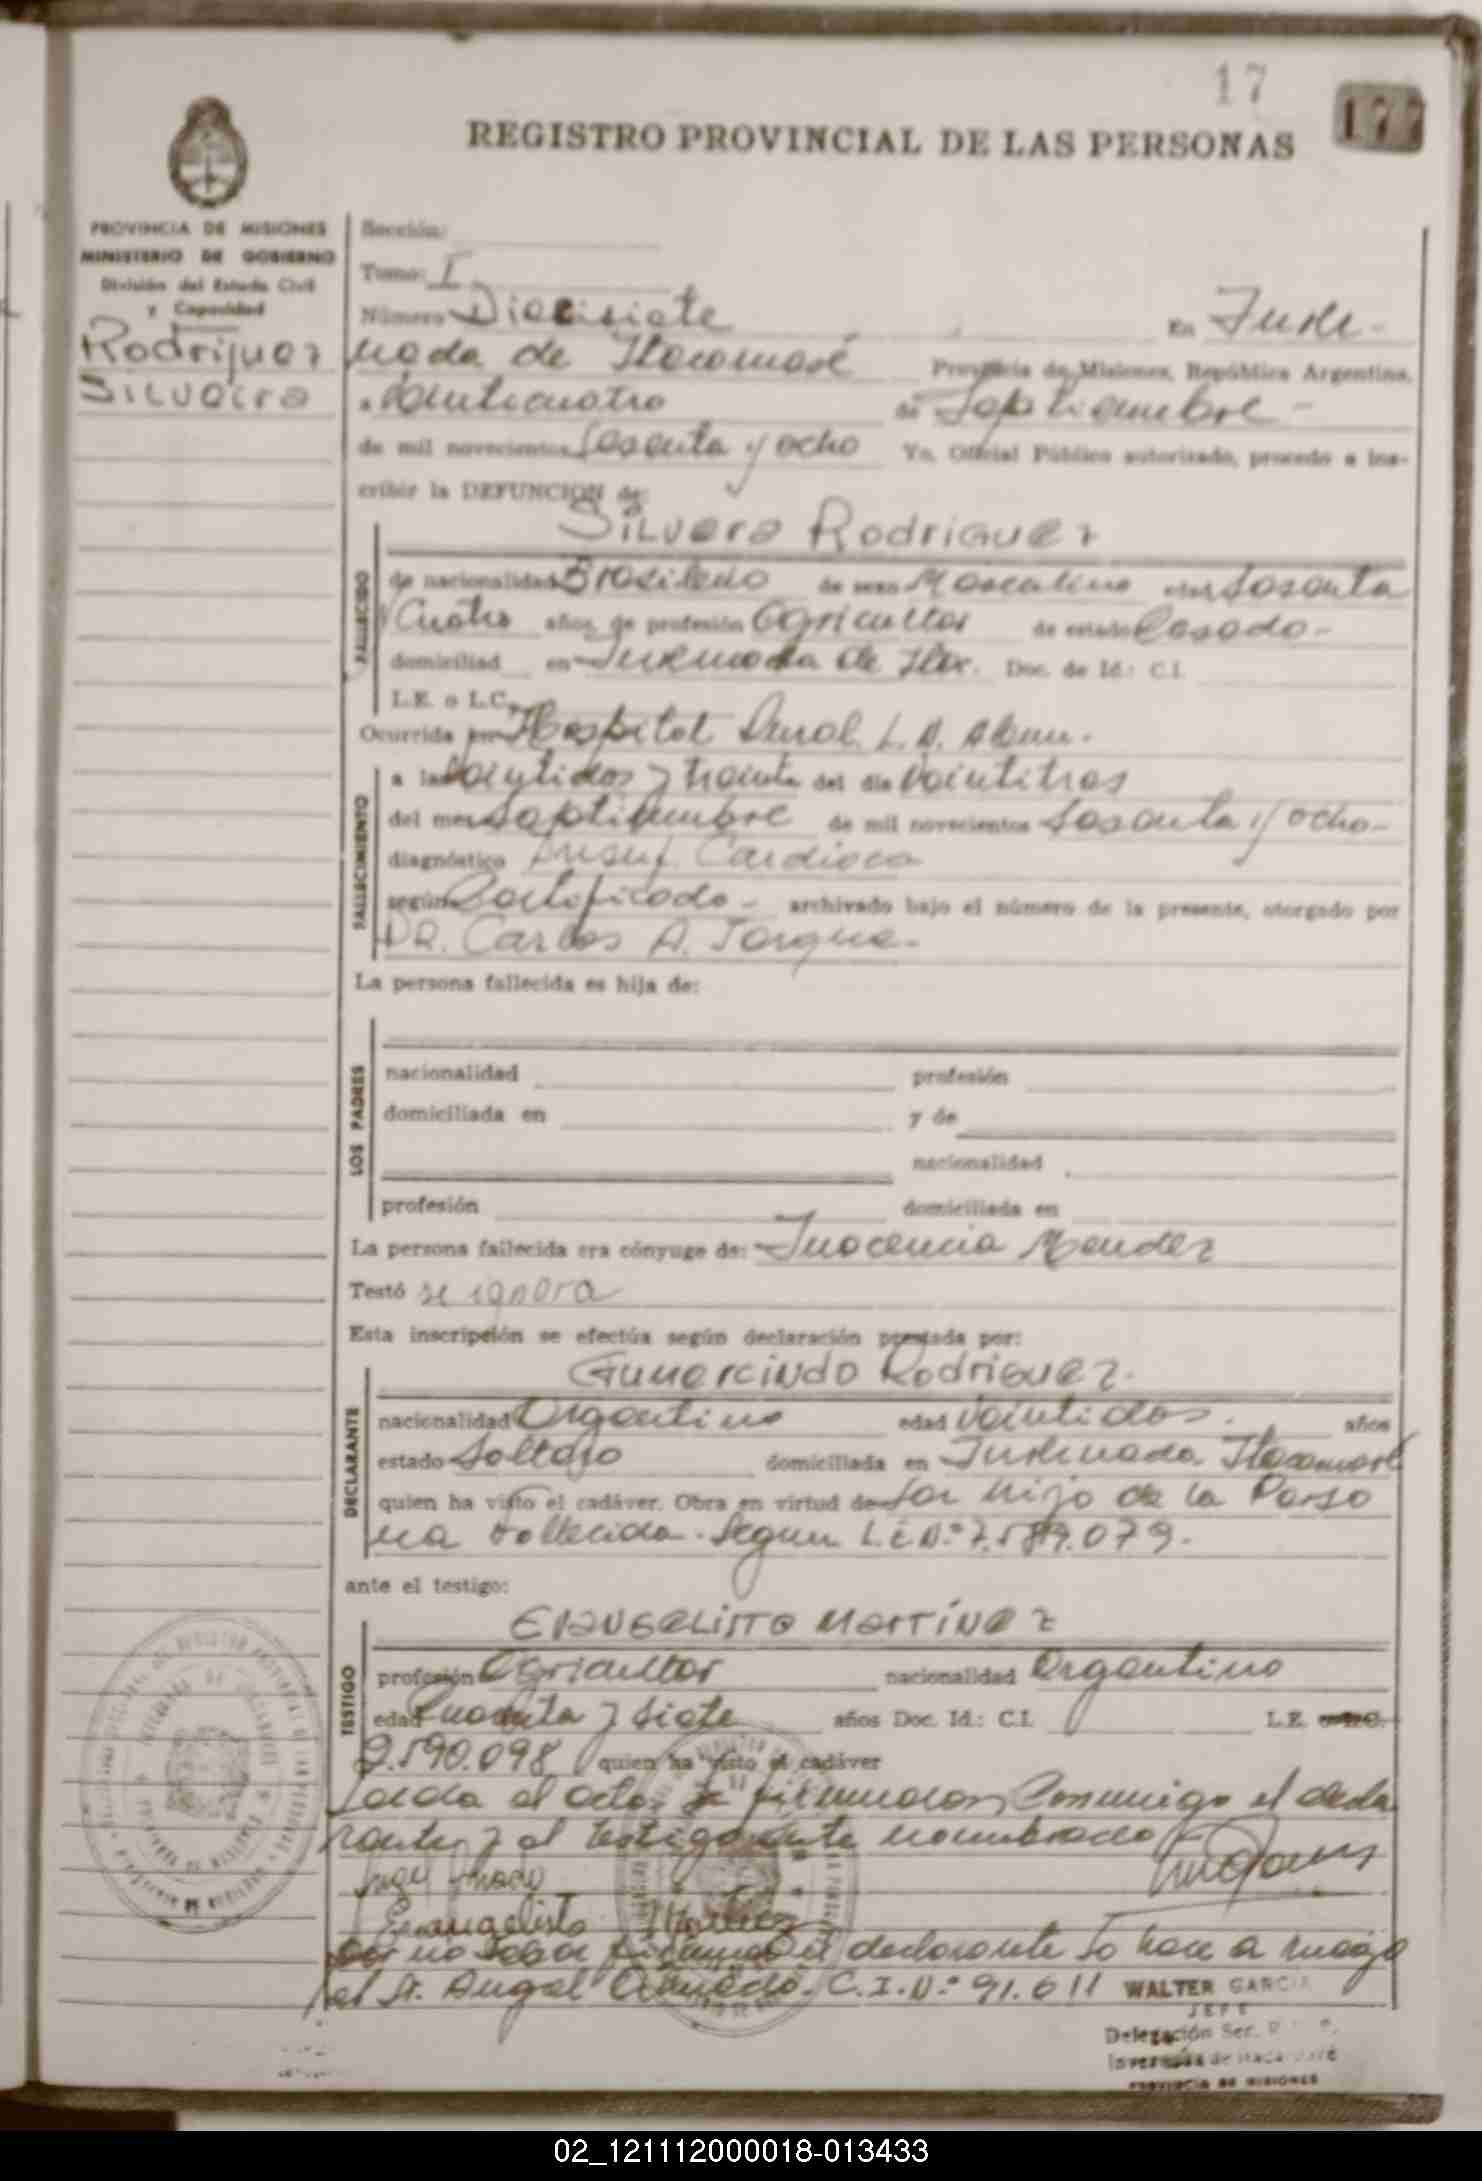 17
177
REGISTRO PROVINCIAL DE LAS PERSONAS
PROVINCIA DE MISIONES
MINISTERIO DE GOBIERNO
División del Estado Civil
y Capacidad
Rodriguez
Silveira
Sección:
Tomo: I
Número Diecisiete En Inver-
nada de Itacaruaré Provincia de Misiones, República Argentina,
a veinticuatro de Septiembre -
de mil novecientos sesenta y ocho Yo, Oficial Público autorizado, procedo a ins-
cribir la DEFUNCION de:
Silvero Rodriguez
FALLECIDO
de nacionalidad Brasileño de sexo Masculino edad Sesenta
Cuatro años, de profesión Agricultor de estado Casado -
domiciliad en Invernada de Itac. Doc. de Id.: C.I.
L.E. o L.C.
Ocurrida en Hospital Rural L. N. Alem -
FALLECIMIENTO
a las Veintidos y treinta del día Veintitres
del mes Septiembre de mil novecientos Sesenta y ocho -
diagnóstico Insuf. Cardiaca
según Certificado - archivado bajo el número de la presente, otorgado por
DR. Carlos A.
La persona fallecida es hija de:
LOS PADRES
nacionalidad profesión
domiciliada en y de
nacionalidad
profesión domiciliada en
La persona fallecida era cónyuge de: Inocencia Mendez
Testó se ignora
Esta inscripción se efectúa según declaración prestada por:
Gumercindo Rodriguez.
DECLARANTE
nacionalidad Argentino edad Veintidos. años
estado Soltero domiciliada en Invernada Itacaruaré
quien ha visto el cadáver. Obra en virtud de Ser hijo de la Perso
na Fallecida. Segun L.E.N.° 7.589.079.
ante el testigo:
Evangelisto Martínez
TESTIGO
profesión Agricultor nacionalidad Argentino
edad Cuarenta y siete años Doc. Id.: C.I. L.E. o L.C.
2.590.098 quien ha visto el cadáver
Leida el acta, la firmaron, Conmigo el decla
rante, y el testigo ante nombrado
Evangelisto Martinez
Por no saber firmar el declarante lo hace a ruego
el Sr. Angel Amado. C.I.N.° 91.611
WALTER GARCIA
JEFE
Delegación
Invernada de Itacaruaré
PROVINCIA DE MISIONES
02_121112000018-013433